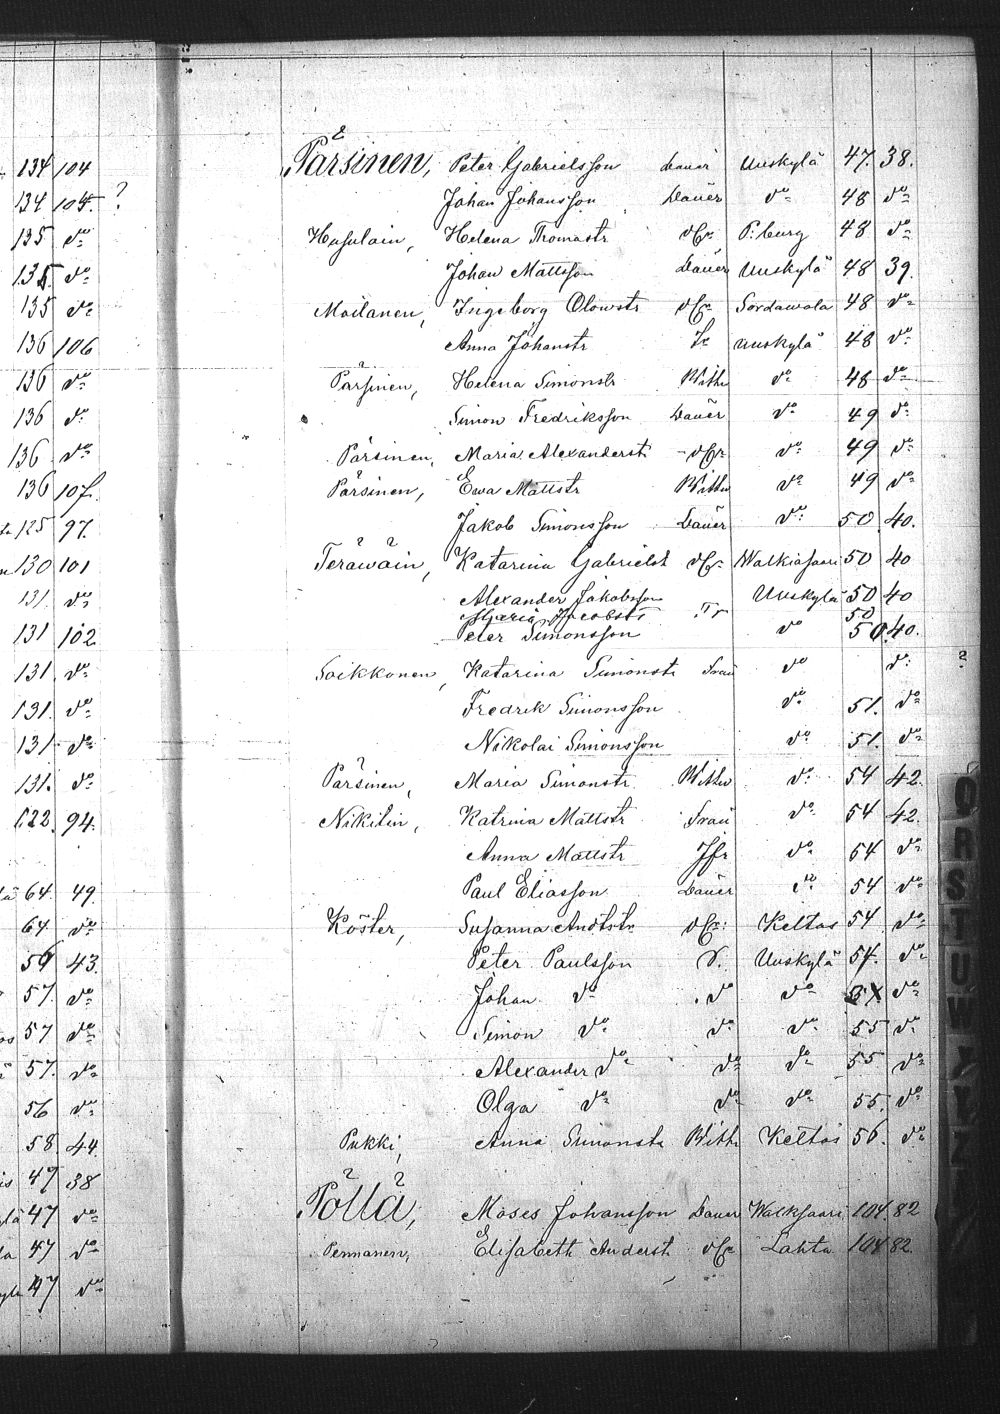 134 104
134 105. ?
135 do
135. do
135 do
136 106
136 do
136 do
136 do
136 107.
125 97.
130 101
131. do
131 102
131. do
131. do
131. do
131. do
122. 94.
64. 49.
64. do
59 43.
57. do
57 do
57. do
56 do
58. 44.
47 38
47 do
47 do
47 do
Pärsinen, Peter Gabrielsson Bauer Uuskylä 47. 38.
Johan Johansson Bauer do 48 do
Helena Thomastr P:burg 48 do
Johan Mattsson Bauer Uuskylä 48 39.
Moilanen, Ingeborg Olowstr Sordawala 48 do
Anna Johanstr Uuskylä 48 do
Pärsinen, Helena Simonstr Withw do 48 do
Simon Fredriksson Bauer do 49 do
Pärsinen, Maria Alexanderstr do 49 do
Pärsinen, Ewa Mattstr Withw do 49 do
Jakob Simonsson Bauer do 50 40.
Teräwäin, Katarina Gabrielst Walkiasaari 50 40
Alexander Jakobsson Uuskylä 50 40
Maria Jacobstr Tr 50
Peter Simonsson do 50. 40.
Soikkonen, Katarina Simonstr Frau do do
Fredrik Simonsson do 51. do
Nikolai Simonsson do 51. do
Pärsinen, Maria Simonstr Withw do 54 42.
Nikitin, Katrina Mattstr Frau do 54 42.
Anna Mattstr Jfr do 54 do
Paul Eliasson Bauer do 54 do
Köster, Susanna Andstr Keltos 54 do
Peter Paulsson S. Uuskylä 54. do
Johan do do do do
Simon do do do 55 do
Alexander do do do 55 do
Olga do do do 55. do
Pukki, Anna Simonstr Withw Keltos 56. do
Pöllä, Moses Johansson Bauer Walksaari 104. 82
Pennanen, Elisabeth Anderst Lahta 104 82.
Q
R
S
T
U
W
X